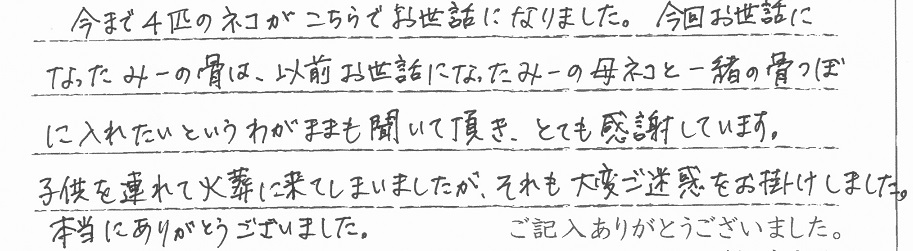 今まで4匹のネコがこちらでお世話になりました。今回お世話に
なったみーの骨は、以前お世話になったみーの母ネコと一緒の骨つぼ
に入れたいというわがままも聞いて頂き、とても感謝しています。
子供を連れて火葬に来てしまいましたが、それも大変ご迷惑をお掛けしました。
本当にありがとうございました。 ご記入ありがとうございました。